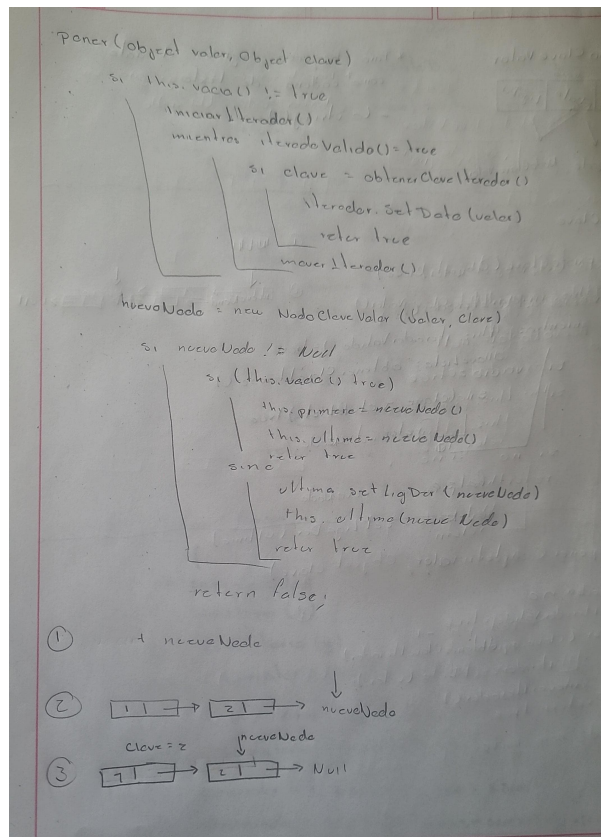 poner (Object valor, Object clave)
si this.vacia() != true
iniciarIterador()
mientras iteradoValido() = true
si clave = obtenerClaveIterador()
iterador.setDato(valor)
reter true
moverIterador()
nuevoNodo = new NodoClaveValor (Valor, Clave)
si nuevoNodo != Null
si (this.vacia() true)
this.primero = nuevoNodo()
this.ultimo = nuevoNodo()
reter true
sino
ultima setLigDer (nuevoNodo)
this.ultimo (nuevo Nodo)
reter true
return false;
① + nuevoNodo
② 1 2 nuevoNodo
Clave = 2 nuevoNodo
③ 1 2 Null